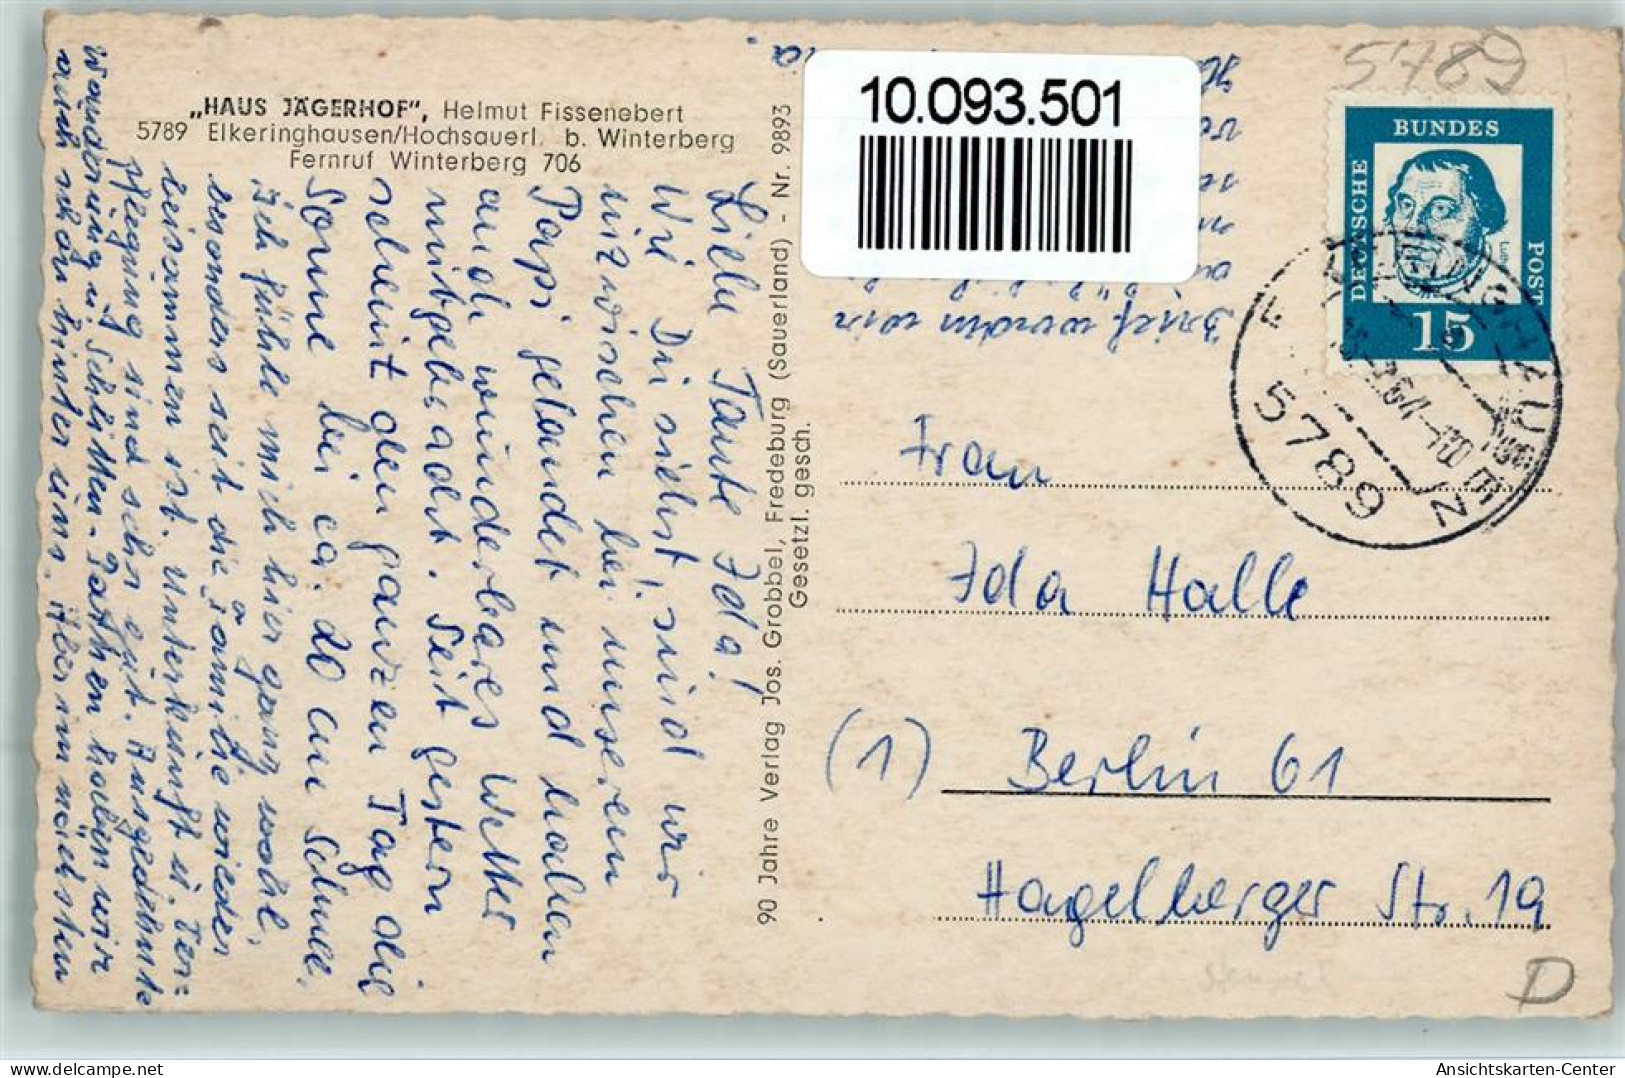 „HAUS JÄGERHOF", Helmut Fissenebert
5789 Elkeringhausen/Hochsauerl. b. Winterberg
Fernruf Winterberg 706
Liebe Tante Ida!
Wie Du siehst, sind wir
inzwischen bei unserem
Papi gelandet und haben
auch wunderbares Wetter
mitgebracht. Seit gestern
scheint den ganzen Tag die
Sonne bei ca. 20 cm Schnee.
Ich fühle mich hier ganz wohl,
besonders seit die Familie wieder
beisammen ist. Unterkunft u. Ver=
pflegung sind sehr gut. Ausgedehnte
Wanderung u. Schlitten-Partien haben wir
auch schon hinter uns. Aber im nächsten
Brief werden wir
90 Jahre Verlag Jos. Grobbel, Fredeburg (Sauerland) - Nr. 9893
Gesetzl. gesch.
10.093.501
5789
BUNDES
DEUTSCHE
POST
15
5789
Frau
Ida Halle
(1) Berlin 61
Hagelberger Str. 19
D
www.delcampe.net
Ansichtskarten-Center